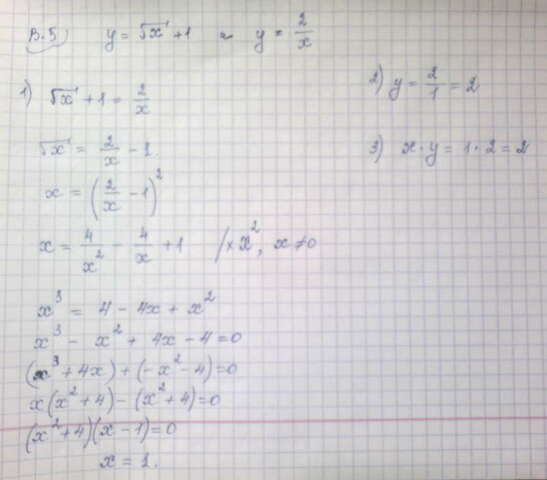 В.5) y = √x + 1 и y = 2/x
1) √x + 1 = 2/x
√x = 2/x - 1.
x = (2/x - 1)²
x = 4/x² - 4/x + 1 /× x², x ≠ 0
x³ = 4 - 4x + x²
x³ - x² + 4x - 4 = 0
(x³ + 4x) + (-x² - 4) = 0
x(x² + 4) - (x² + 4) = 0
(x² + 4)(x - 1) = 0
x = 1.
2) y = 2/1 = 2
3) x · y = 1 · 2 = 2